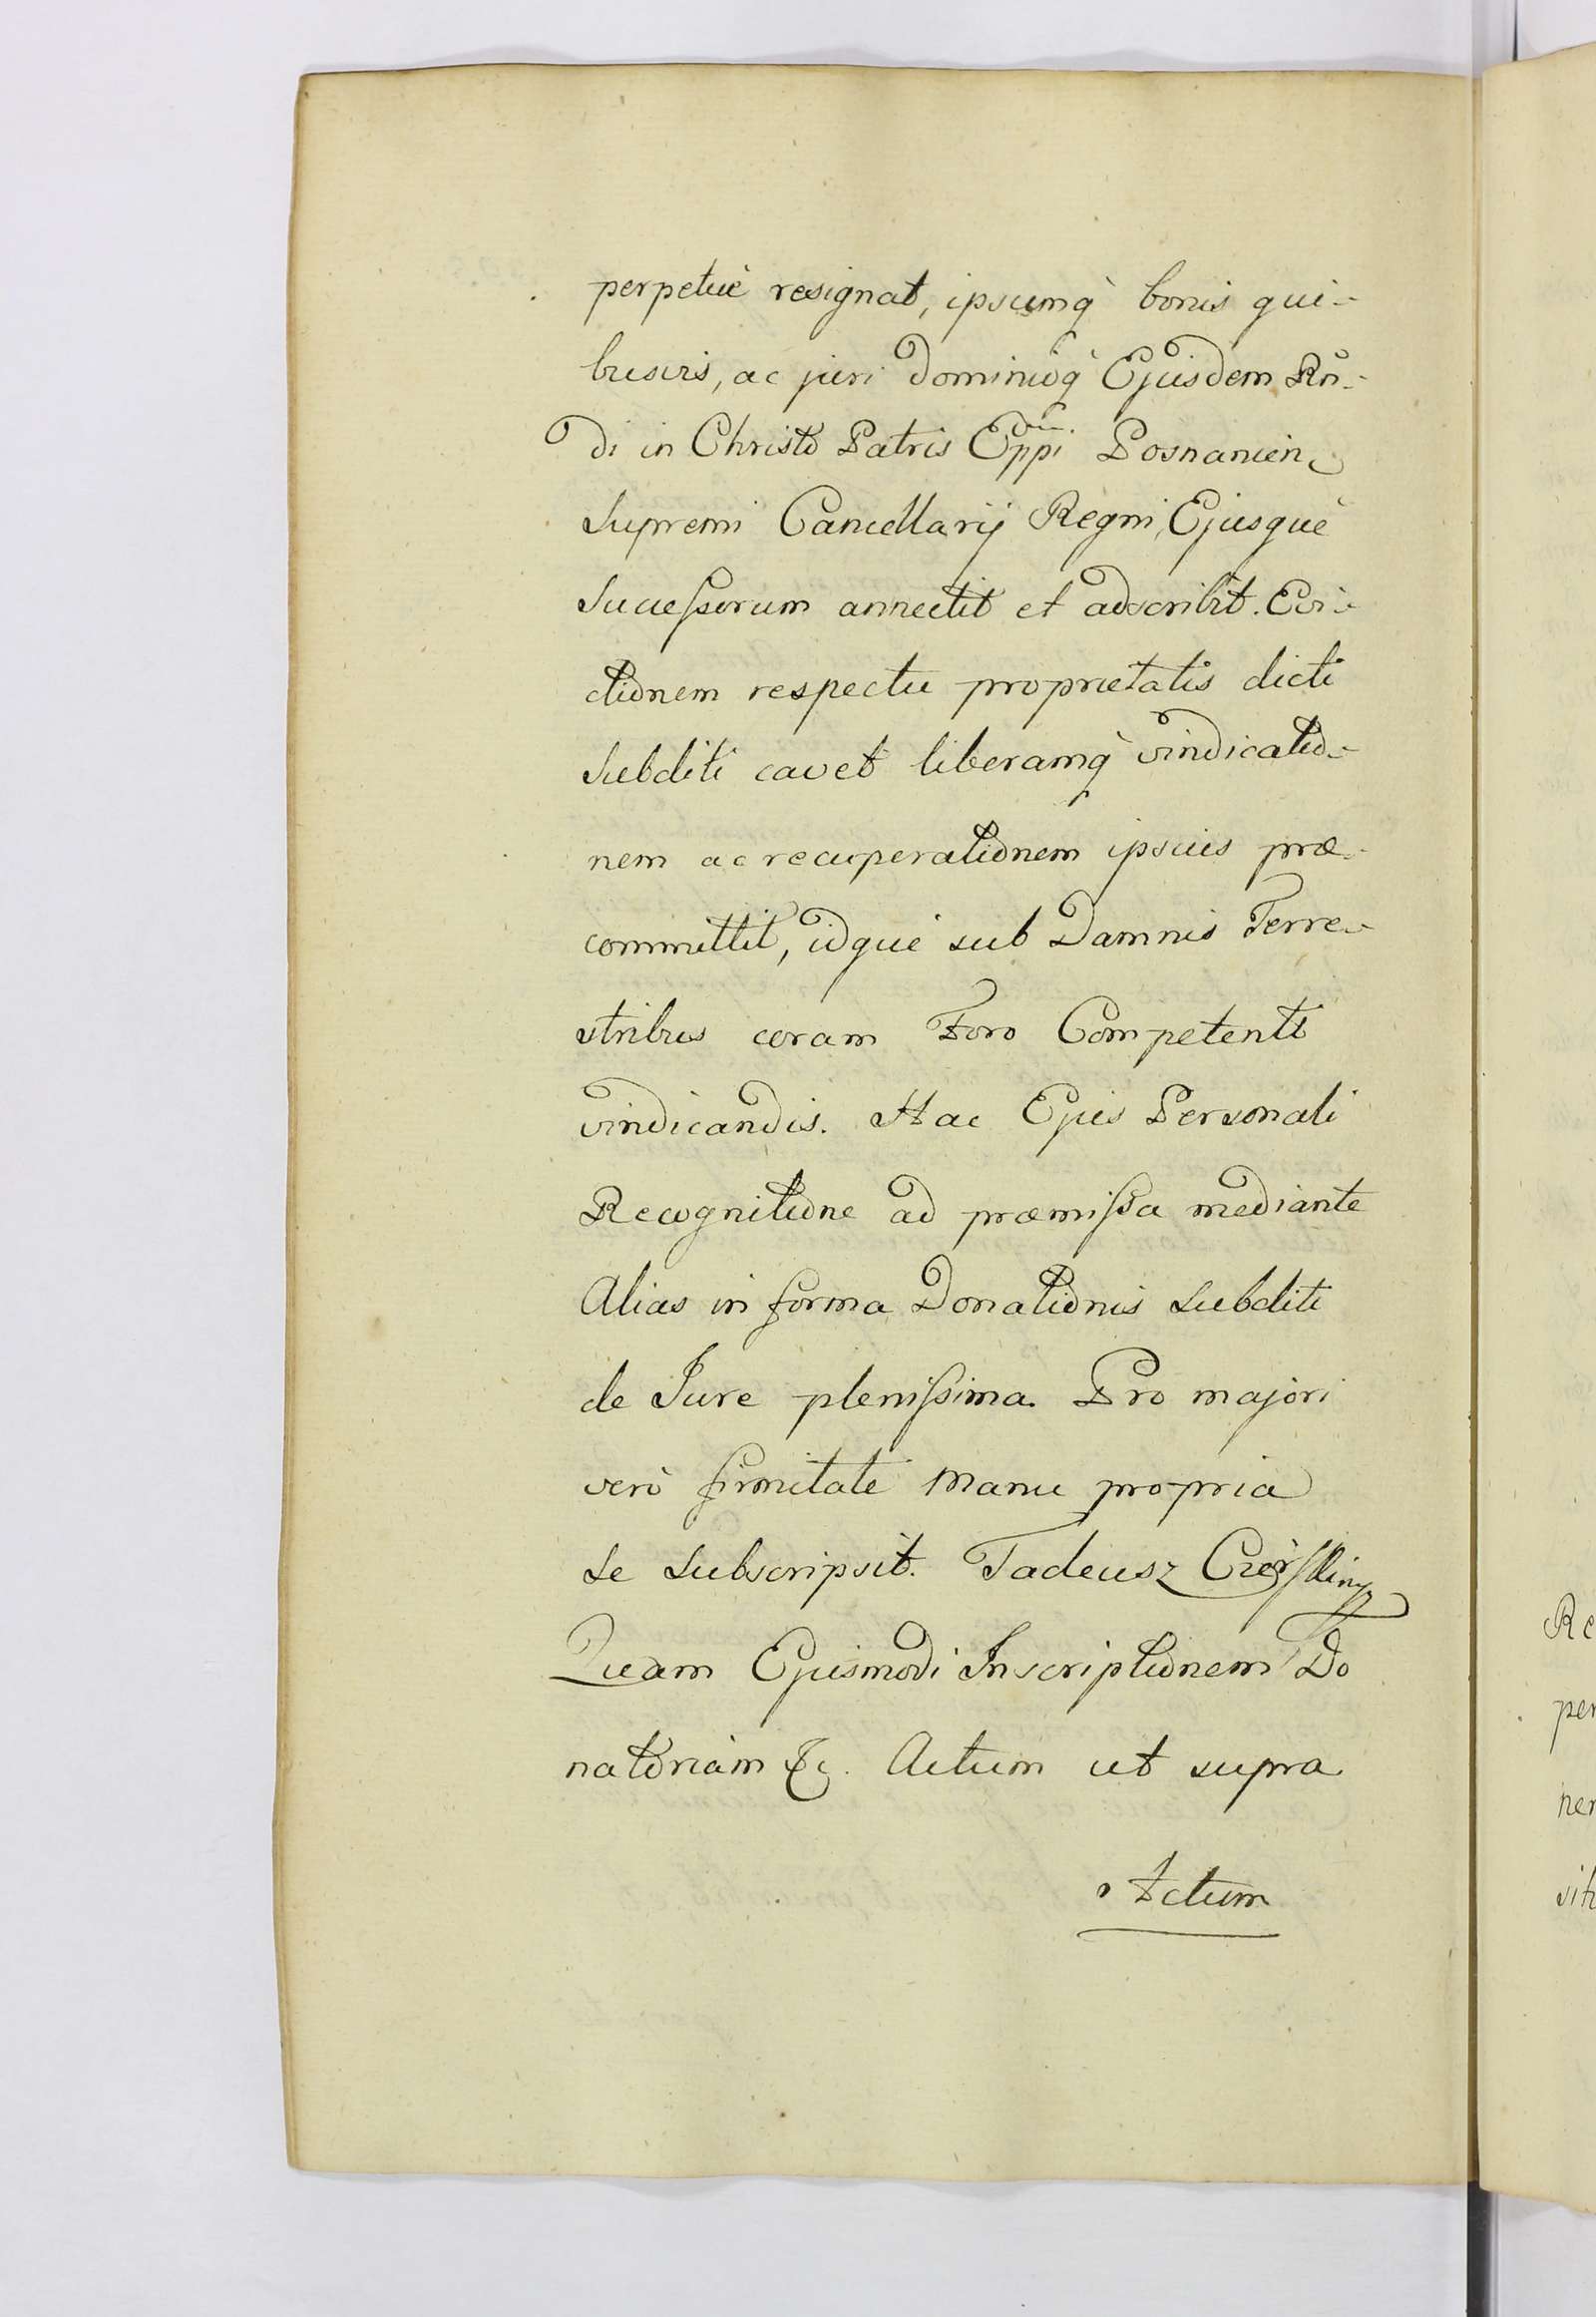 perpetuè resignat, ipsumq̀ bonis qui-
busvis, ac juri dominioq̀ Ejusdem Rn̄-
di in Christo Patris Eppi Posnanien
Supremi Cancellarij Regni, Ejusquè
Successorum annectit et adscribit. Evi-
ctionem respectu proprietatis dicti
Subditi cavet liberamq̀ vindicatio-
nem ac recuperationem ipsius præ-
committit, idquè sub Damnis Terre-
stribus coram Foro Competenti
vindicandis. Hac Ejus Personali
Recognitione ad præmissa mediante
Alias in forma Donationis Subditi
de Jure plenissima. Pro majori
verò firmitate manu propria
Se Subscripsit. Tadeusz
Quam Ejusmodi Inscriptionem Do
natoriam &c. Actum ut supra
Actum
Re
per
ner